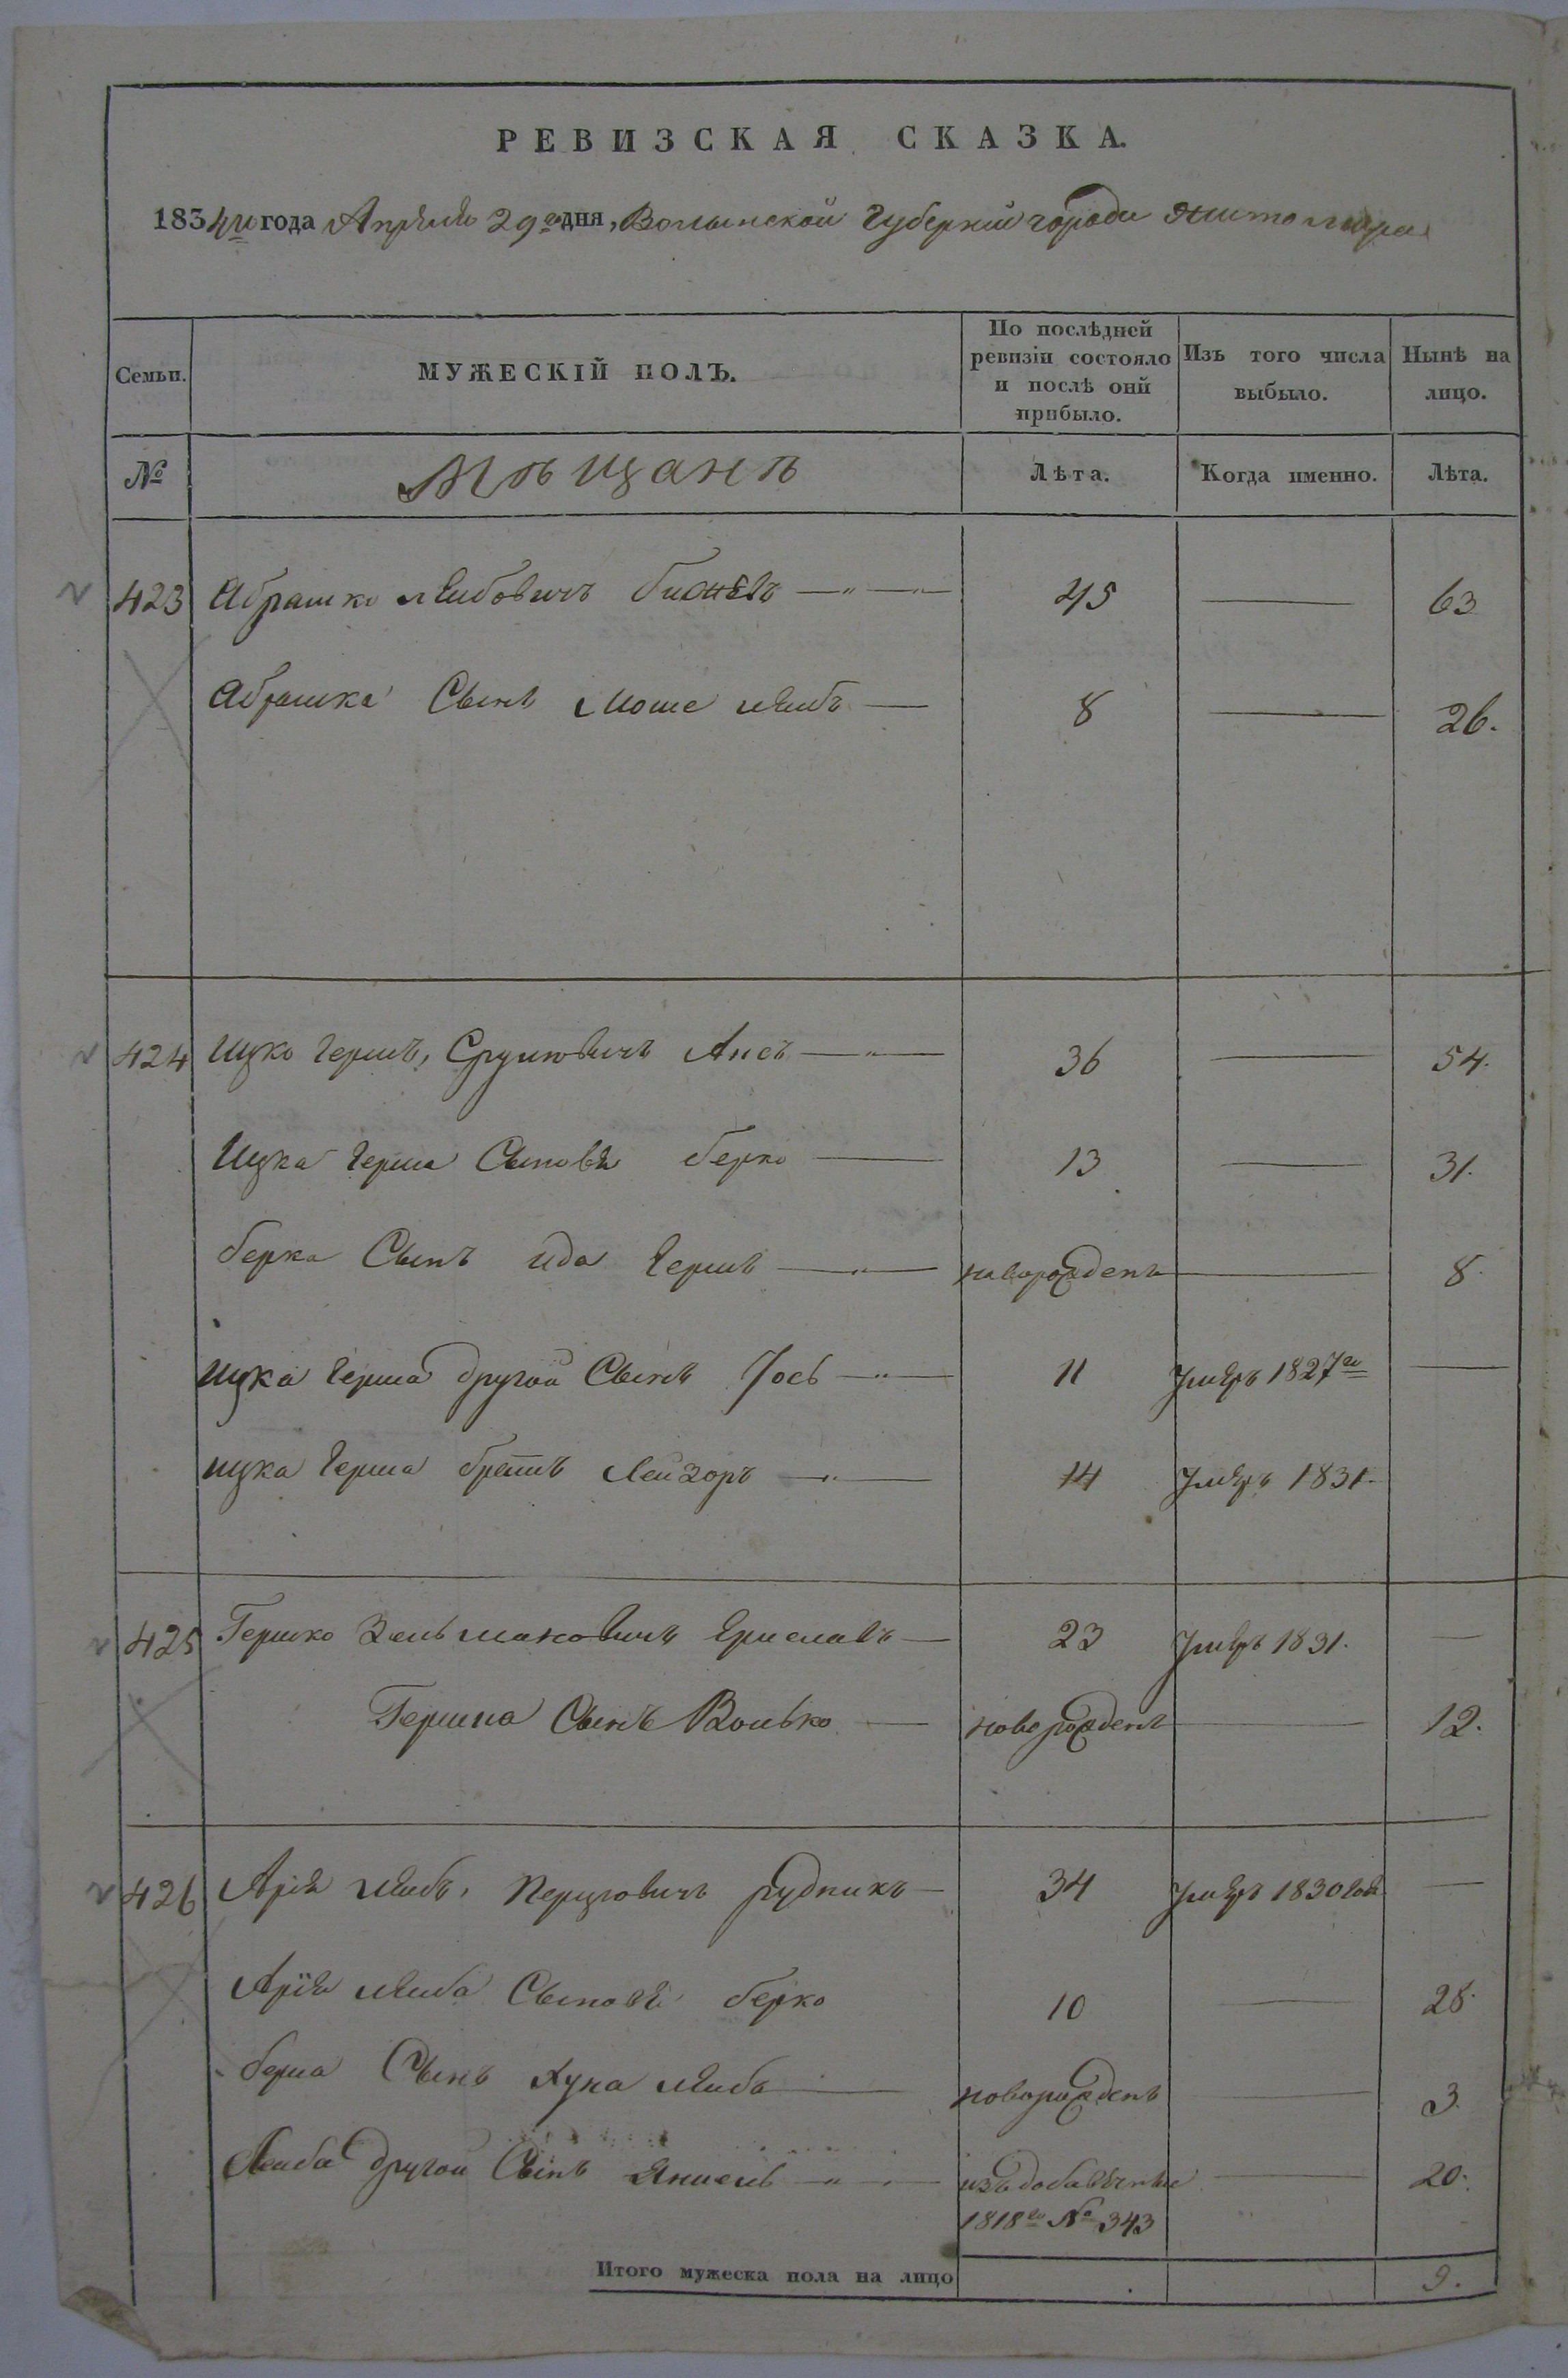 РЕВИЗСКАЯ СКАЗКА.
1834го года Апреля 29го дня, Волынской Губернии города Житомира
Семьи. МУЖЕСКІЙ ПОЛЪ. По послѣдней ревизіи состояло и послѣ оной прибыло. Изъ того числа выбыло. Нынѣ на лицо.
№ Мѣщанъ Лѣта. Когда именно. Лѣта.
423 Абрашко Лейбовичъ 45 — 63
Абрашка Сынъ Моше Лейбъ — 8 — 26.
424 Ицко Гершъ, Срулиовичъ — 36 — 54.
Ицка Герша Сыновья берко — 13 — 31.
берка Сынъ Гершъ — новорожденъ — 8.
ицка Герша другой Сынъ Іось — 11 умеръ 1827го —
ицка Герша братъ Лейзоръ — 14 умеръ 1831.
425 Гершко Зельмановичъ — 23 умеръ 1831. —
Гершка Сынъ Волько — новорожденъ — 12.
426 Арія Лейбъ, Перцовичъ рудникъ — 34 умеръ 1830 года —
Арія Лейба Сыновья берко 10 — 28.
берка Сынъ Хуна Лейбъ — новорожденъ — 3.
Лейба другой Сынъ — изъ добавочныхъ — 20.
1818го № 343
Итого мужеска пола на лицо 9.